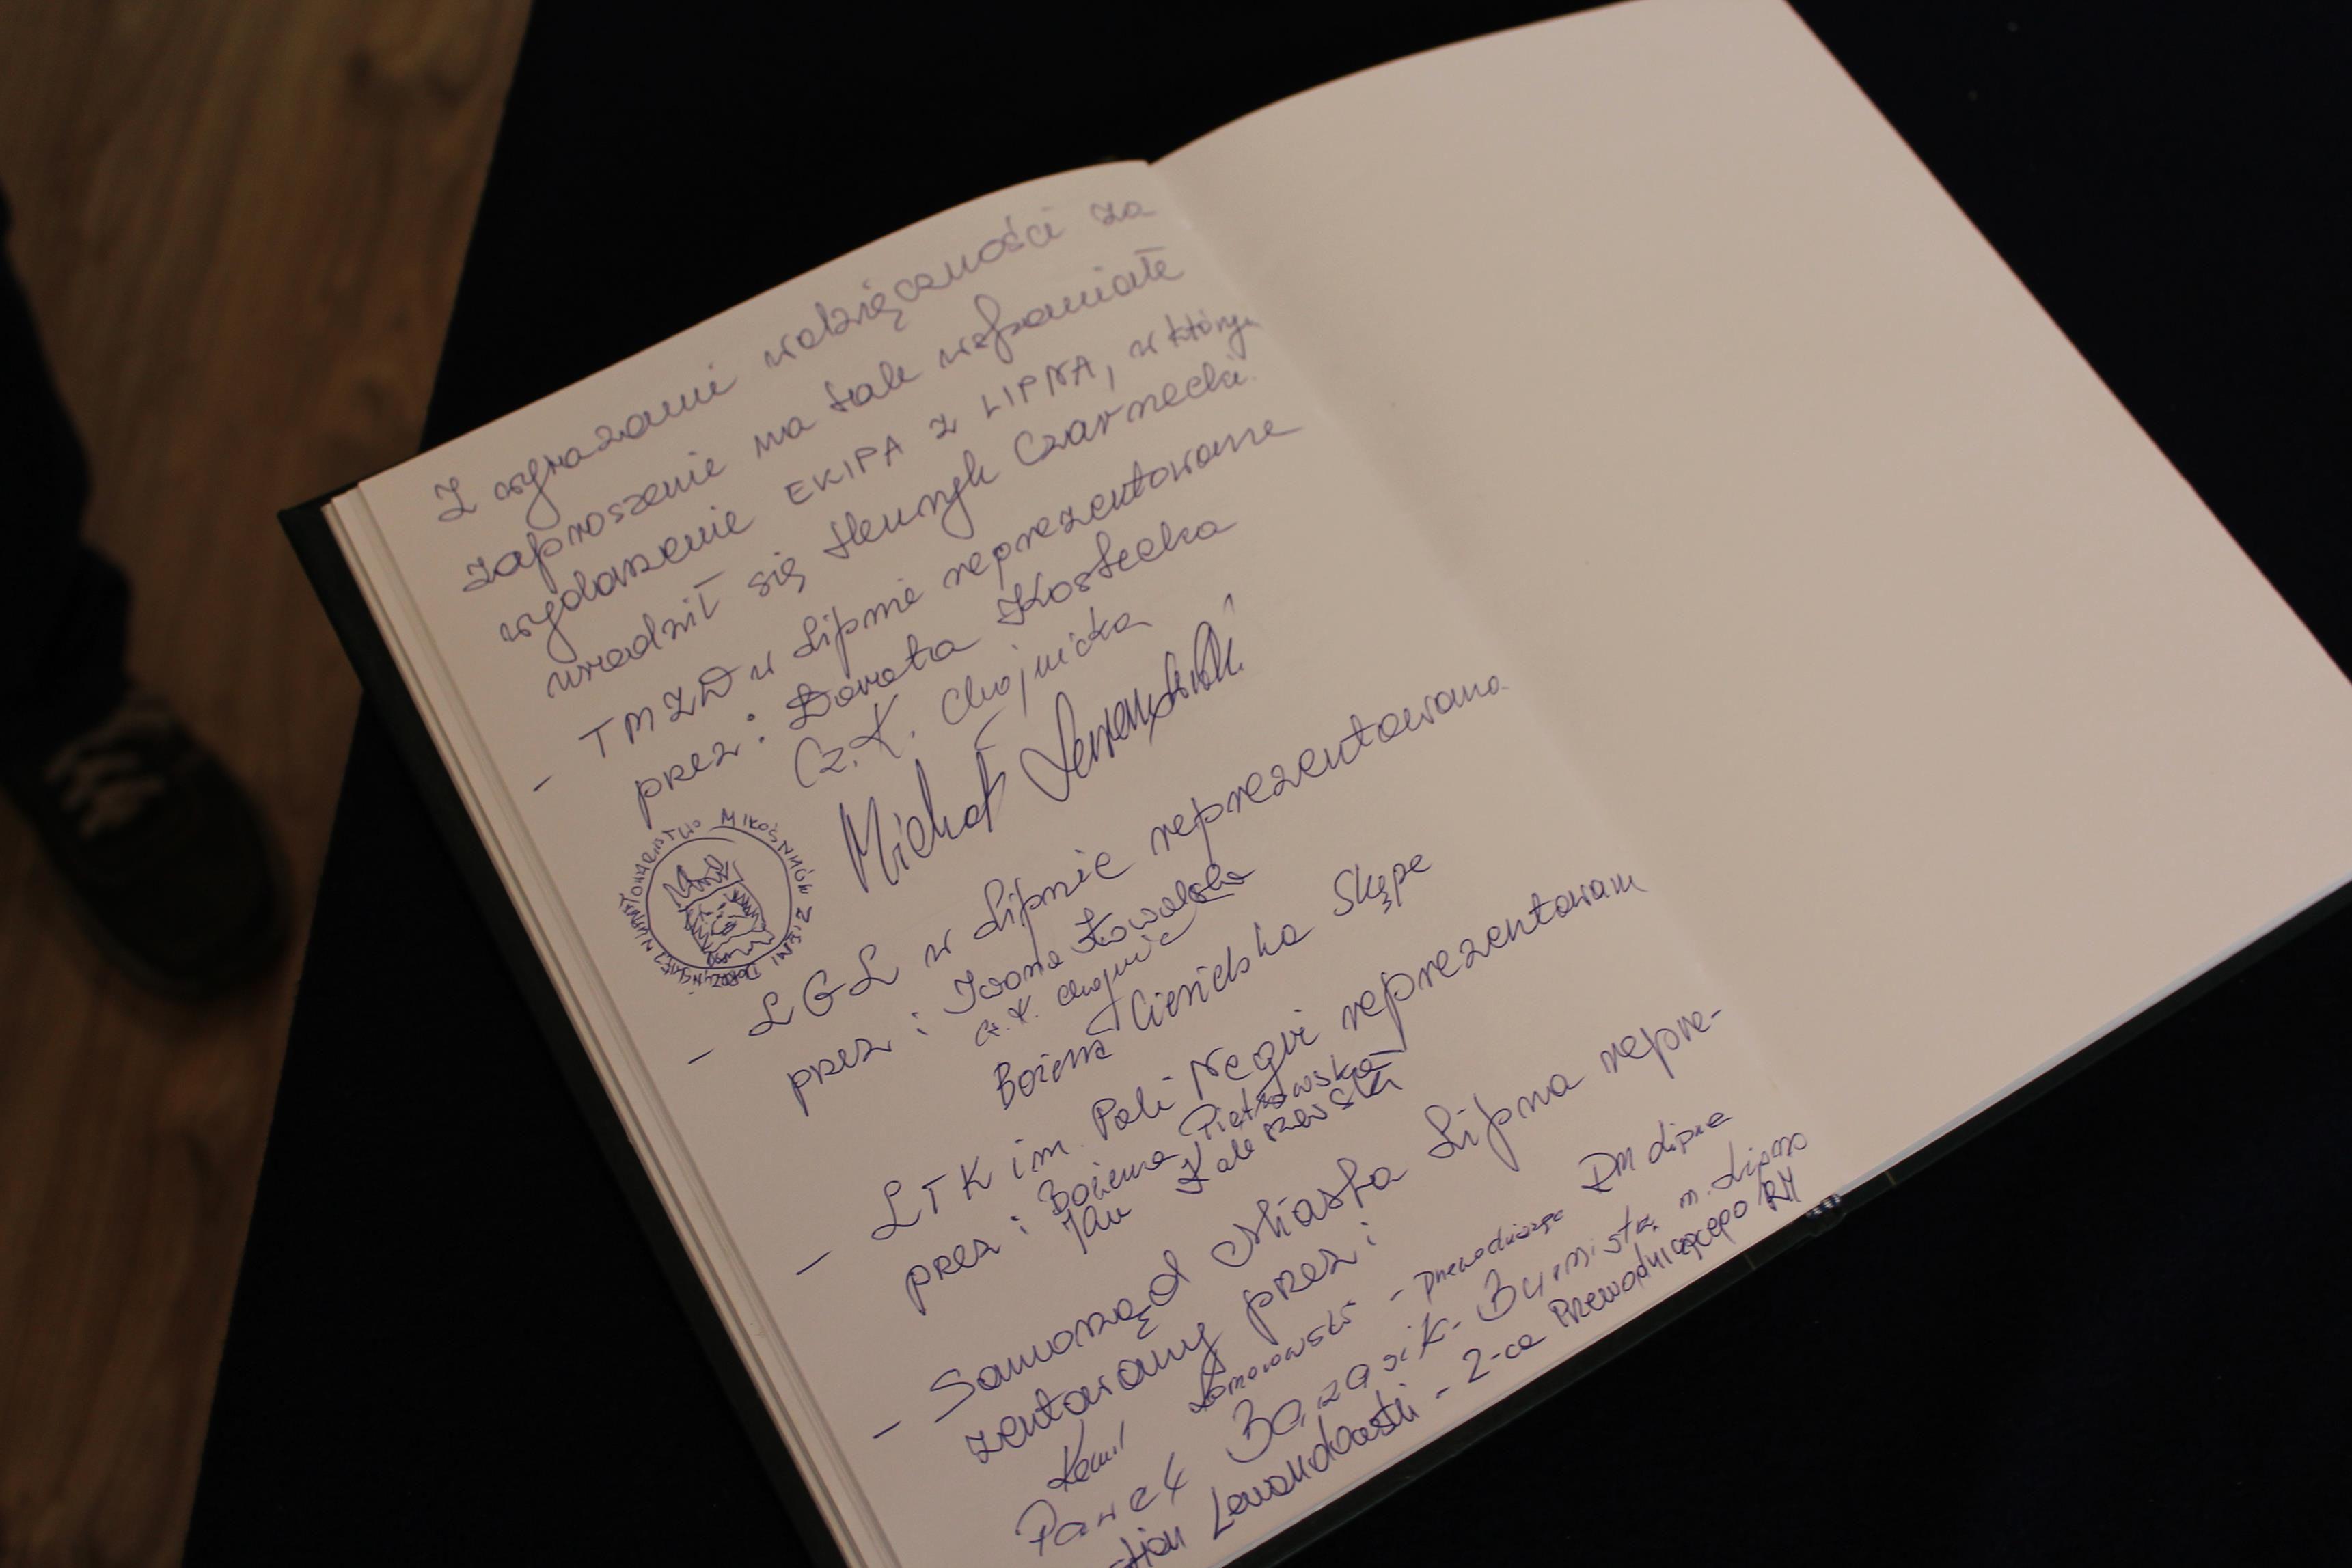 Z wyrazami wdzięczności za
zaproszenie na tak wspaniałe
wydarzenie EKIPA z LIPNA, w którym
urodził się Henryk Czarnecki.
- TMZD w Lipnie reprezentowane
przez: Dorota Kostecka
Cz. K. Chojnicka
Michał
TOWARZYSTWO MIŁOŚNIKÓW ZIEMI DOBRZYŃSKIEJ W LIPNIE
- LGL w Lipnie reprezentowana
przez: Iwona Kowalska
Cz. K. Chojnicka
Bożena Ciesielska Skępe
- LTK im. Poli Negri reprezentowani
przez: Bożena Piętkowska
Jan
- Samorząd Miasta Lipna repre-
zentowany przez:
Kamil Komorowski - przewodniczący RM Lipna
Paweł Banasik - Burmistrz m. Lipno
Lewandowski - Z-ca Przewodniczącego RM